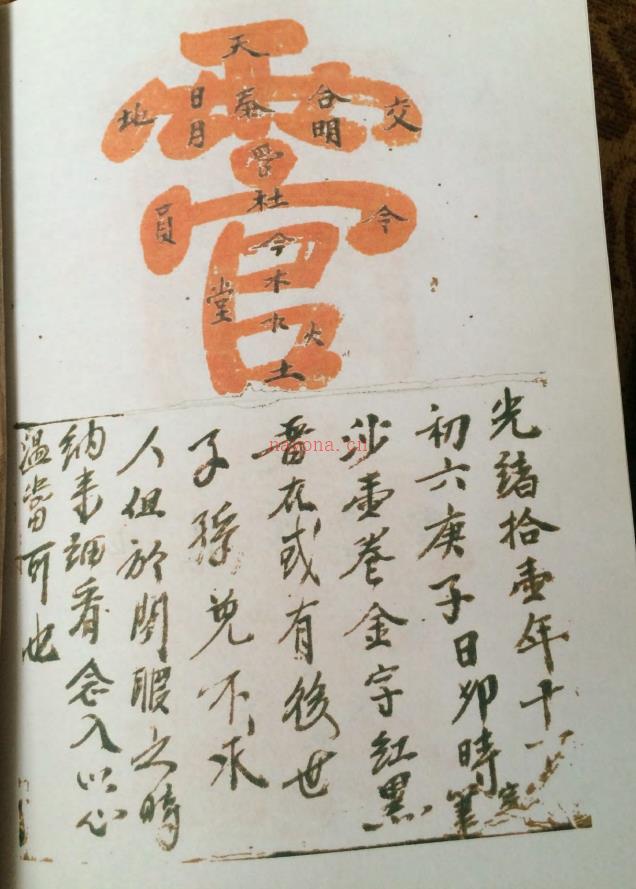 天
地 日月 泰 合明 交
杜
員 令 令
堂 木
水 火
土
光緒拾壹年十一
初六庚子日卯時
沙壶卷金字紅黑筆
存在或有後世
子孫免不求
人但於閒暇之時
納来細看念入以心
温當可也
nayona.cn